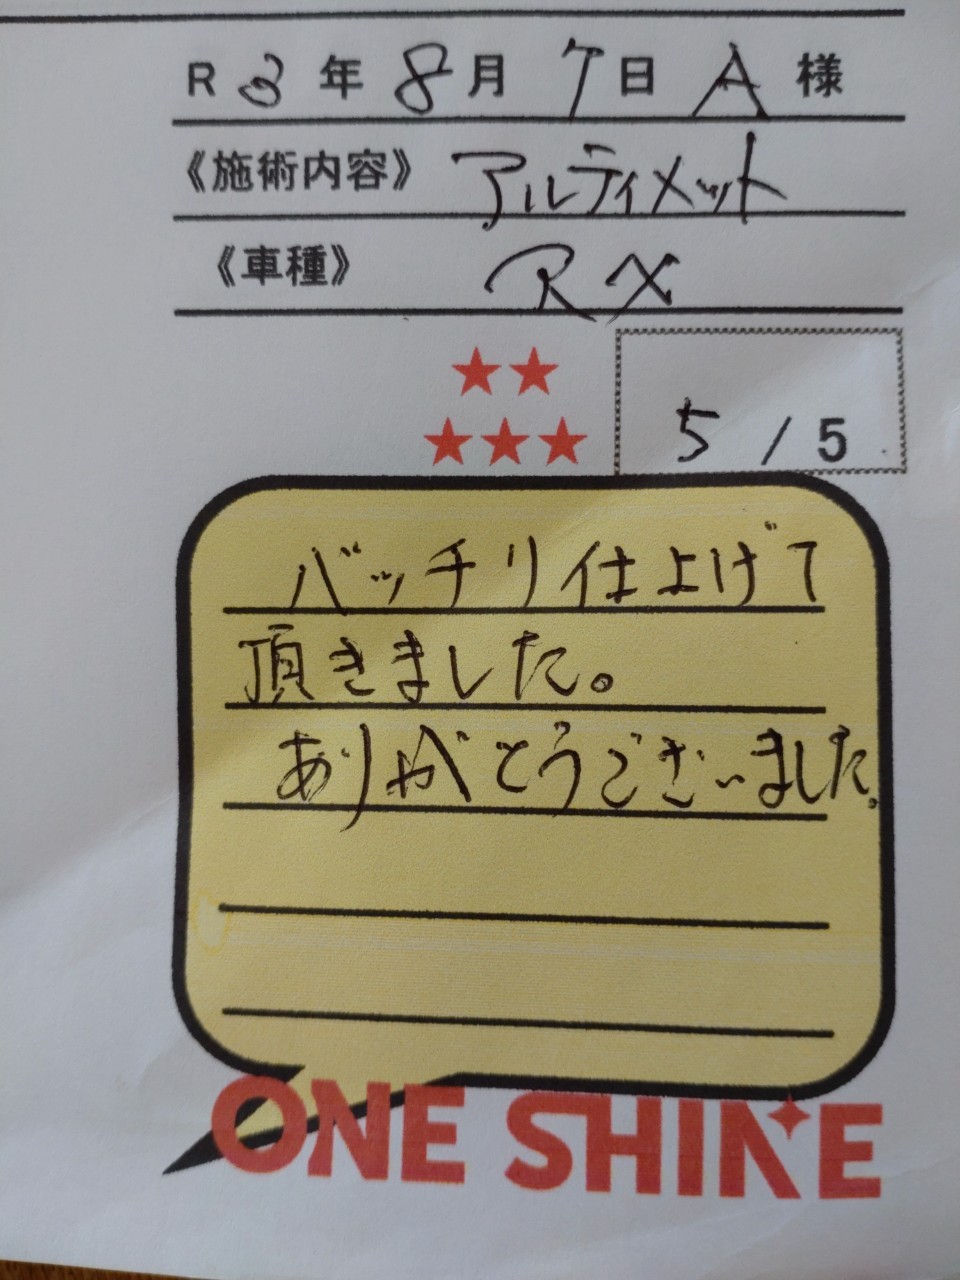 R 3 年 8 月 7 日 A 様
《施術内容》 アルティメット
《車種》 RX
★★
★★★
5 / 5
バッチリ仕上げて
頂きました。
ありがとうございました。
ONE SHINE